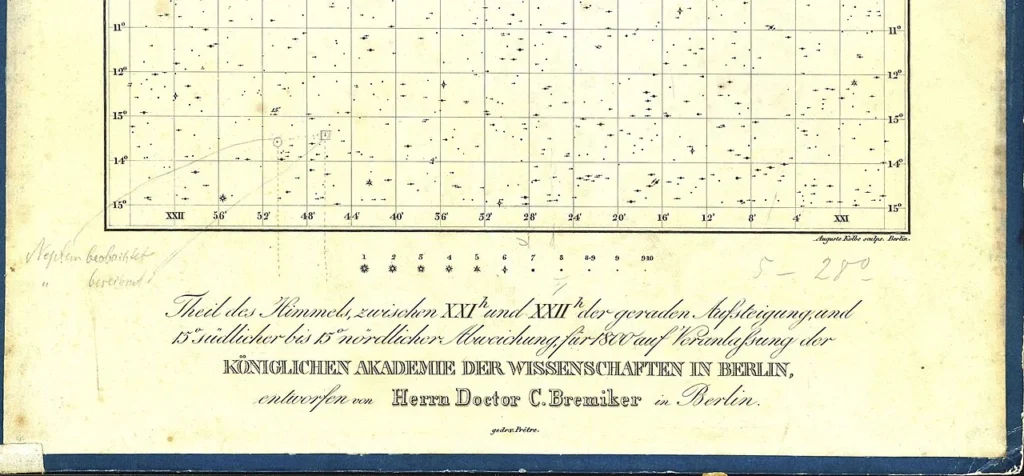 11° 11°
12° 12°
15
15° 13°
14° 14°
15° 15°
XXII 56' 52' 48' 44' 40' 36' 32' 28' 24' 20' 16' 12' 8' 4' XXI
Auguste Kolbe sculps. Berlin.
Neptun beobachtet
" berechnet
1 2 3 4 5 6 7 8 8·9 9 9·10
5 – 28°
Theil des Himmels, zwischen XXIʰ und XXIIʰ der geraden Aufsteigung, und
15° südlicher bis 15° nördlicher Abweichung, für 1800 auf Veranlaſsung der
KÖNIGLICHEN AKADEMIE DER WISSENSCHAFTEN IN BERLIN,
entworfen von Herrn Doctor C. Bremiker in Berlin.
gedr. v. Prêtre.